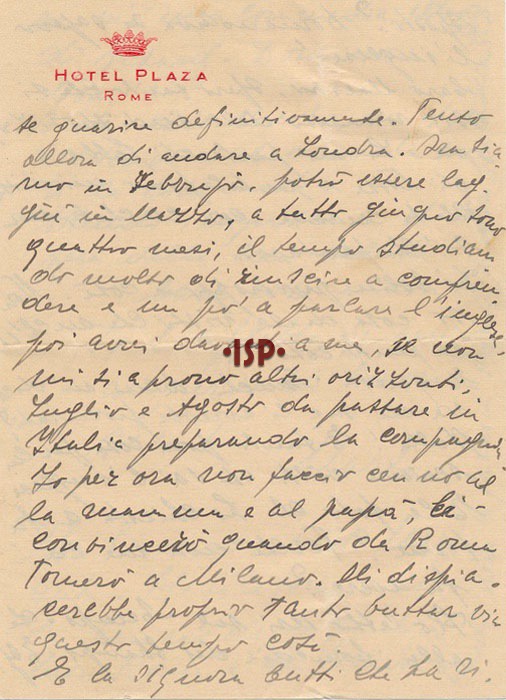 HOTEL PLAZA
ROME
te guarire definitivamente. Tento
allora di andare a Londra. Ora sia
mo in Febbraio, potrò essere lag
giù in Marzo, a tutto giugno sono
quattro mesi, il tempo studian
do molto di riuscire a compren
dere e un po' a parlare l'inglese,
poi avrei davanti a me, se non
mi si aprono altri orizzonti,
Luglio e Agosto da passare in
Italia preparando la compagnia.
Io per ora non faccio cenno al
la mamma e al papà, li
convincerò quando da Roma
Tornerò a Milano. Mi dispia-
cerebbe proprio tanto buttar via
questo tempo così.
E la signora Butti che ha ri-
•ISP•